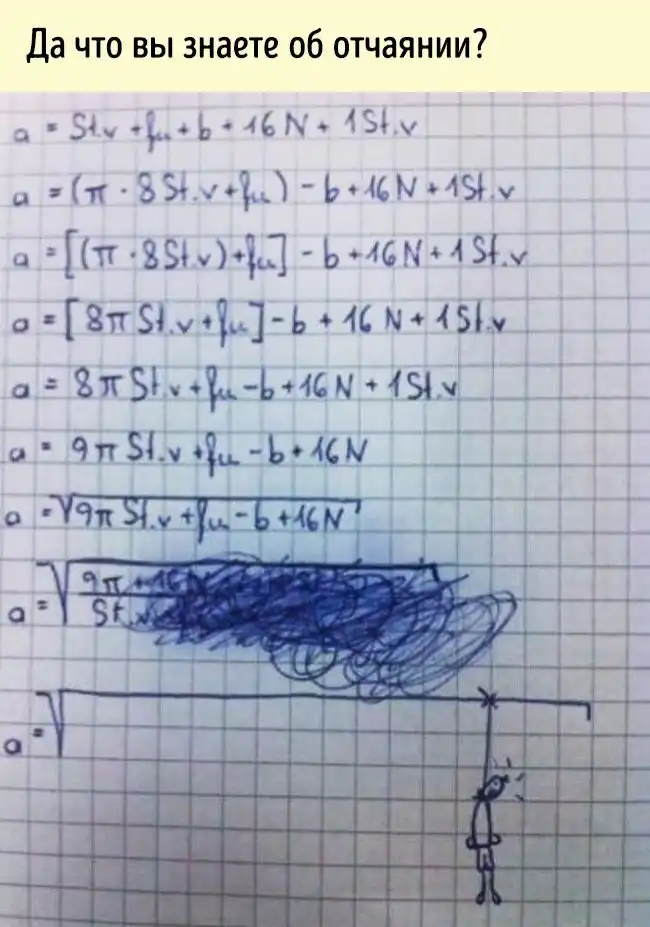 Да что вы знаете об отчаянии?
a = St.v + fu + b + 16 N + 1 St.v
a = (π · 8 St.v + fu) - b + 16 N + 1 St.v
a = [(π · 8 St.v) + fu] - b + 16 N + 1 St.v
a = [8π St.v + fu] - b + 16 N + 1 St.v
a = 8π St.v + fu - b + 16 N + 1 St.v
a = 9π St.v + fu - b + 16 N
a = √9π St.v + fu - b + 16 N
a = √9π + 16
St.v
a = √